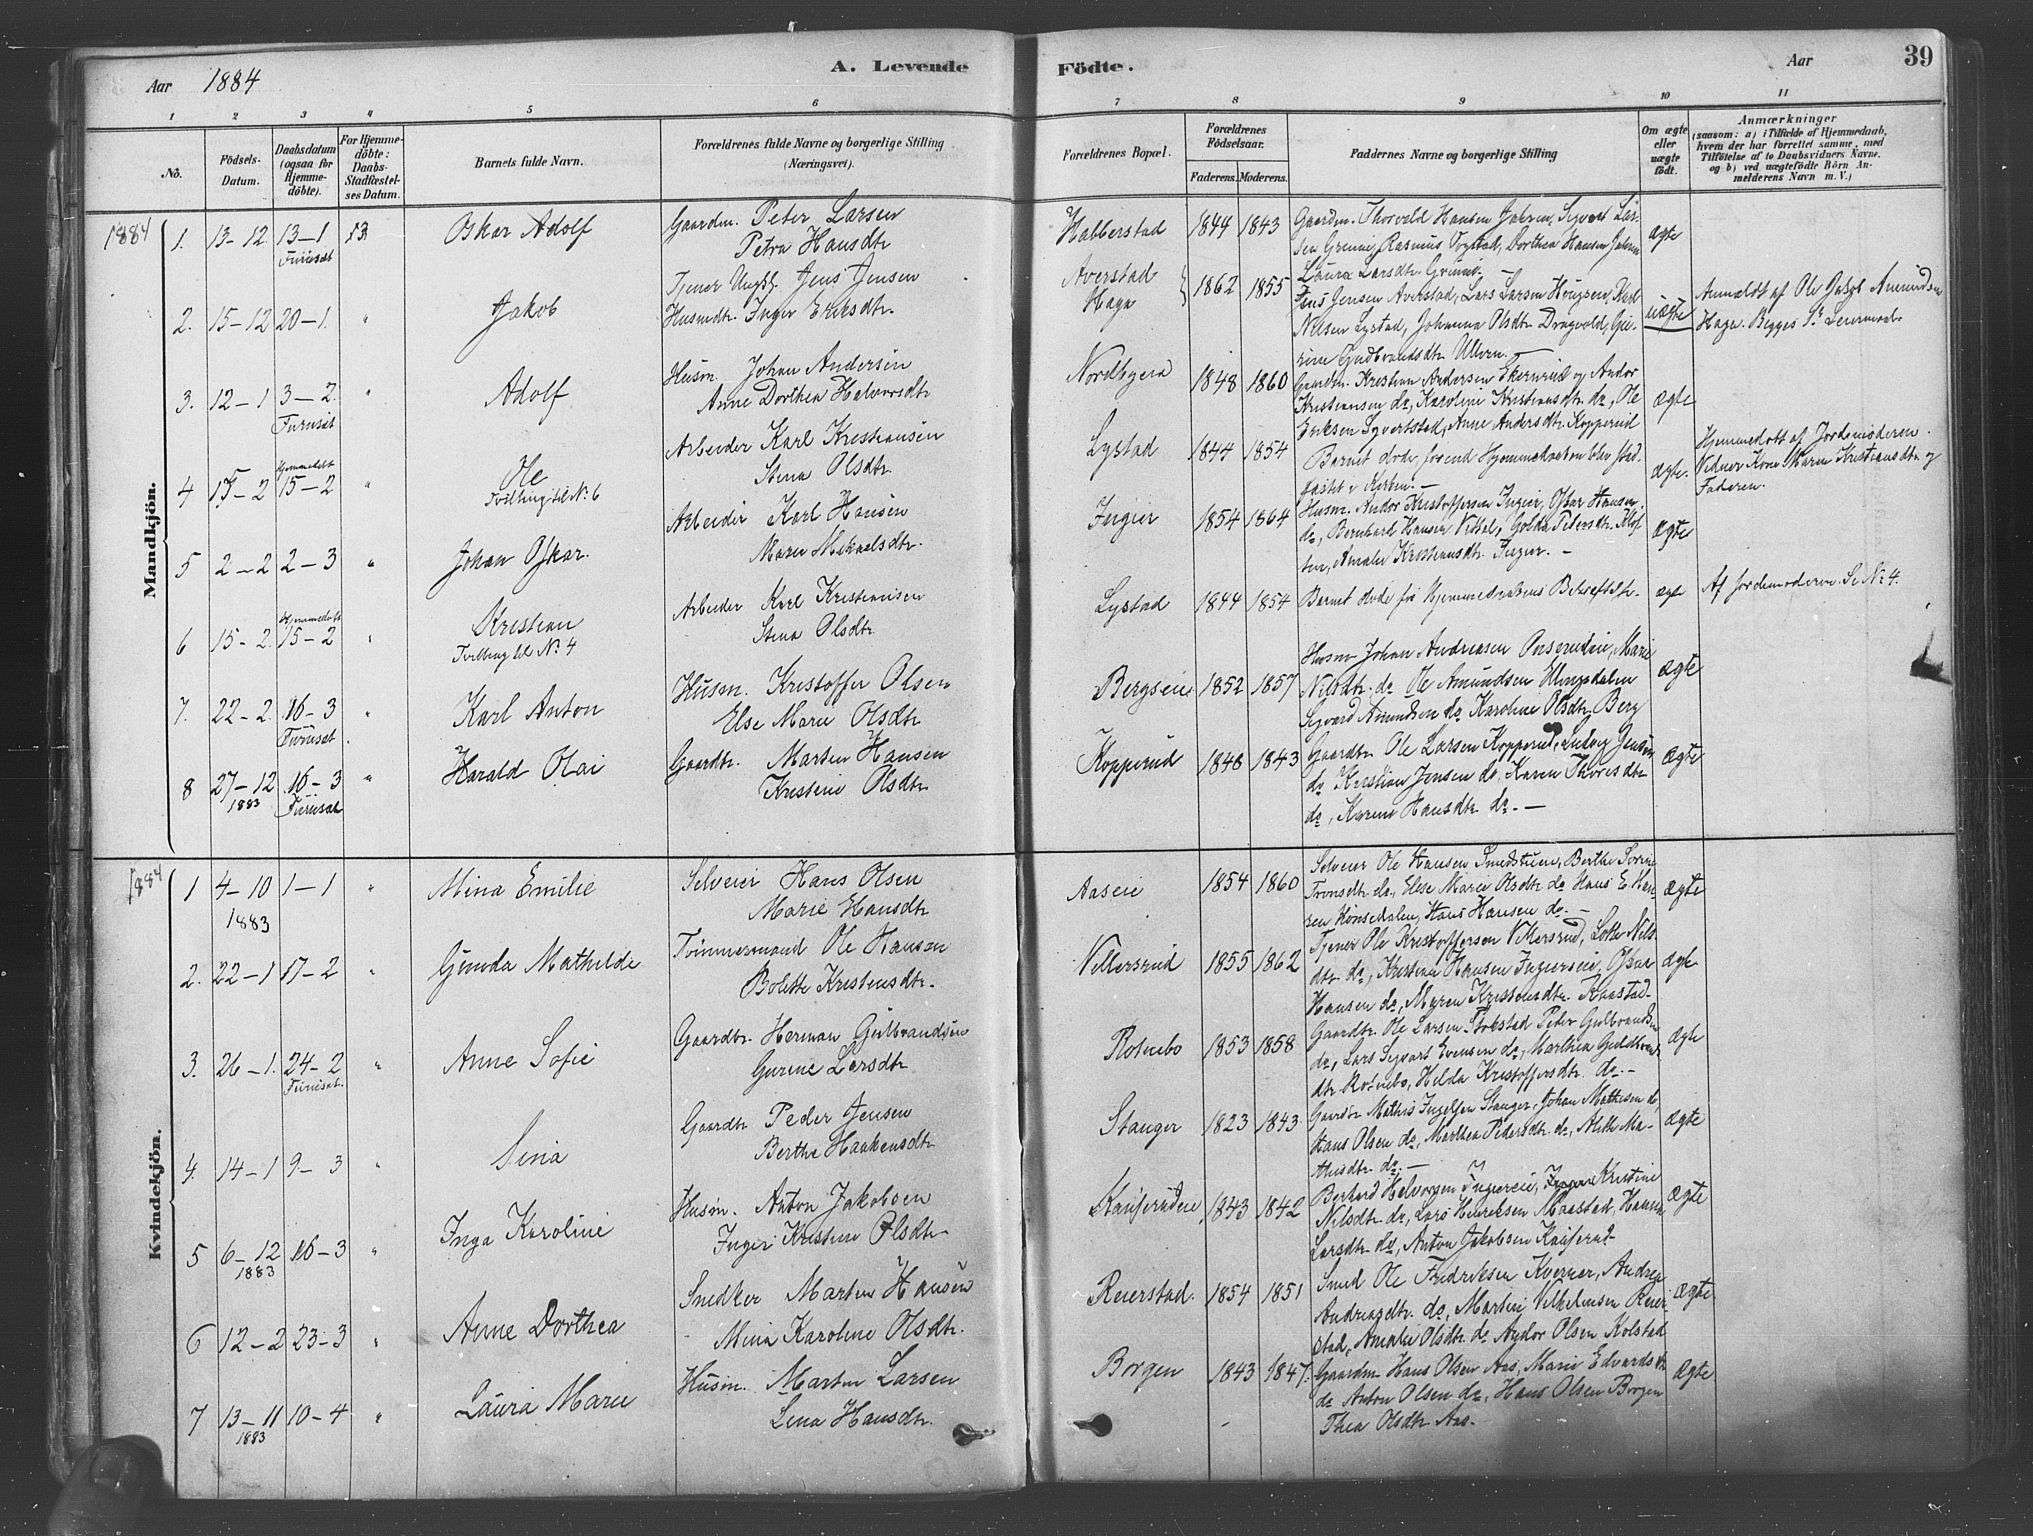 Aar 1884
A. Levende Fødte.
Aar
39
1 2 3 4 5 6 7 8 9 10 11
No.
Födsels-Datum.
Daabsdatum (ogsaa for Hjemme-döbte).
For Hjemme-döbte: Daabs-Stadfæstel-ses Datum.
Barnets fulde Navn.
Forældrenes fulde Navne og borgerlige Stilling (Næringsvei).
Forældrenes Bopæl.
Forældrenes Födselsaar.
Faderens. Moderens.
Faddernes Navne og borgerlige Stilling
Om ægte eller uægte födt.
Anmærkninger
(saasom: a) i Tilfælde af Hjemmedaab,
hvem der har forrettet samme, med
Tilföielse af to Daabsvidners Navne,
og b) ved uægtefödte Börn An-
melderens Navn m. V.)
Mandkjön.
1884
1. 13-12 13-1 Furuset 13 Oskar Adolf
Gaardm. Peter Larsen
Petra Hansdtr
Habberstad 1844 1843
Gaardm. Thorvald Hansen Jahren, Syvert Lar-
sen Grinni, Rasmus Togstad, Dorthea Hansen Jahren
Laura Larsdtr Grinni. —
ægte
2. 15-12 20-1. " Jakob
Tjener Ungk. Jens Jensen
Husmdtr. Inger Eriksdtr.
Averstad
Haga
1862 1855
Jens Jensen Averstad, Lars Larsen Hougsen, Karl
Nilsen Lystad, Johanna Olsdtr Dragvold,
Gudbrandsdtr Ullern. —
uægte
Anmeldt af Ole Jakob Amundsen
Haga. Begges 1ste Leiermaal.
3. 12-1 3-2. Furuset " Adolf
Husm. Johan Andersen
Anne Dorthea Halvorsdtr
Nordbyeia 1848 1860
Gaardm. Kristian Andersen Ekernæs og Andor
Kristiansen do, Karoline Kristiansdtr do, Ole
Eriksen Syvertstad, Anne Andersdtr Kopperud
ægte
4 15-2 Hjemmedøbt 15-2 " Ole
Tvilling til No. 6
Arbeider Karl Kristiansen
Stena Olsdtr
Lystad 1844 1854
Barnet døde, forend Hjemmedaaben blev stad-
fæstet i Kirken. —
ægte.
Hjemmedøbt af Jordemoderen.
Vidner Kone Maren Kristiansdtr og
Faderen.
5 2-2 2-3 " Johan Oskar.
Arbeider Karl Hansen
Maren Mikaelsdtr.
Ingier 1854 1864
Husm. Andor Kristoffersen Ingier, Oskar Hansen
do, Bernhard Hansen Vidsal, Golda Petersdtr Klof-
ten, Amalie Kristiansdtr Ingier. —
ægte
6 15-2. Hjemmedøbt 15-2 " Kristian
Tvilling til No. 4
Arbeider Karl Kristiansen
Stena Olsdtr
Lystad 1844 1854
Barnet døde før Hjemmedaabens Bekræftelse.
ægte
Af Jordemoderen. Se No. 4.
7. 22-2. 16-3 Furuset " Karl Anton
Husm. Kristoffer Olsen
Else Marie Olsdtr
Bergseie 1852 1857
Husm Johan Andreasen Onserudeie, Marie
Nilsdtr. do Ole Amundsen Elingsdalen
Sigvard Amundsen do Karoline Olsdtr. Berg
ægte
8 27-12 1883 16-3 Furuset " Harald Olai
Gaardbr. Marten Hansen
Kristine Olsdtr
Kopperud 1848 1843
Gaardbr. Ole Larsen Kopperud, Ludvig Jensen
do Kristian Jensen do, Karen Thoresdtr
do, Karen Hansdtr do. —
ægte
Kvindekjön.
1884
1 4-10 1883 1-1 " Mina Emilie
Selveier Hans Olsen
Marie Hansdtr
Aaseie 1854 1860
Selveier Ole Hansen Smedstuen, Berthe
do, Else Marie Olsdtr do Hans E. Han-
sen Kønsedalen, Hans Hansen do. —
ægte
2. 22-1 17-2 " Gunda Mathilde
Tømmermand Ole Hansen
Bolette Kristensdtr.
Villersrud 1855 1862
Tjener Ole Kristoffersen Villersrud, Lotte Nils-
dtr do, Kristian Hansen Ingierseie, Oskar
Hansen do, Maren Kristensdtr. Kaastad.
ægte
3. 26-1. 24-2 Furuset. " Anne Sofie
Gaardbr. Herman Gulbrandsen
Gurine Larsdtr
Rotnebo 1853 1858
Gaardbr. Ole Larsen Stokstad Peter Gulbrandsen
do, Lars Sigvart Evensen do, Marthea Guldbrands
dtr Rotnebo, Hilda Kristoffersdtr. do. —
ægte
4. 14-1 9-3 " Sina
Gaardbr Peder Jensen
Berthe Haakensdtr
Stanger 1823 1843
Gaardbr Mathis Ingelsen Stanger, Johan Mathisen do,
Hans Olsen do, Marthea Pedersdtr. do, Alette Ma-
thisdtr do. —
ægte
5 6-12 1883 16-3 " Inga Karoline
Husm. Anton Jakobsen
Inger Kristine Olsdtr
Kauserudeie 1843 1842
Berhard Halvorsen Ingiereie, Kristine
Nilsdtr do, Lars Henriksen Maastad, Hansine
Larsdtr do, Anton Jakobsen Kauserud.
ægte
6 12-2 23-3 " Anne Dorthea
Snedker Marten Hansen
Mina Karoline Olsdtr.
Reierstad. 1854 1851
Smed Ole Fredriksen Kverner, Andrea
Andreasdtr. do, Martin Vilhelmsen Reier-
stad, Amalie Olsdtr. do Andor Olsen Kolstad
ægte
7 13-11 1883 10-4 " Laura Marie
Husm. Marten Larsen
Lena Hansdtr.
Borgen 1843 1847.
Gaardm Hans Olsen Aas, Marie Edvardsdtr.
do Anton Olsen do, Hans Olsen Borgen
Thea Olsdtr Aas.
ægte